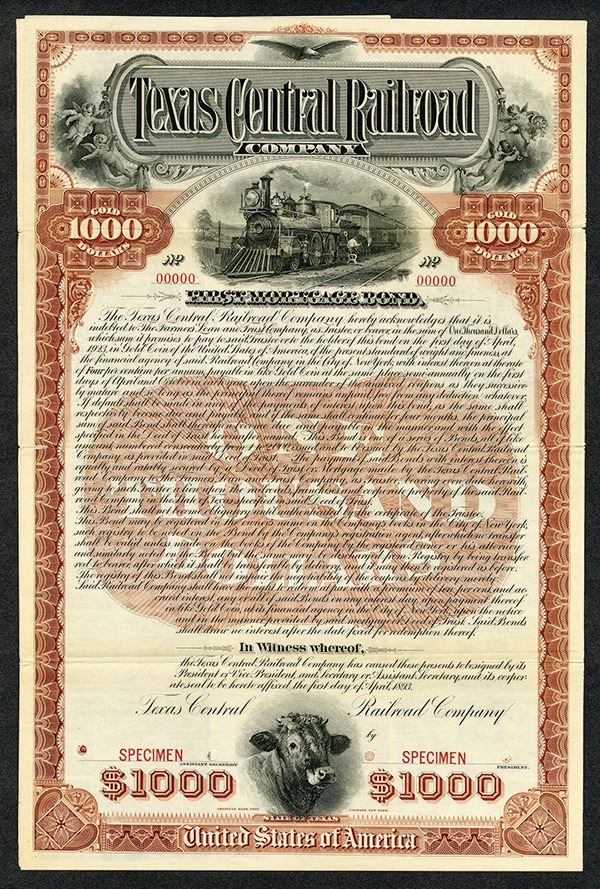 Texas Central Railroad
COMPANY
GOLD
1000
DOLLARS
GOLD
1000
DOLLARS
No
00000
No
00000
FIRST MORTGAGE BOND.
The Texas Central Railroad Company hereby acknowledges that it is
indebted to The Farmers Loan and Trust Company, as Trustee, or bearer, in the sum of One Thousand Dollars,
which sum it promises to pay to said Trustee or to the holder of this bond on the first day of April,
1923, in Gold Coin of the United States of America, of the present standard of weight and fineness, at
the financial agency of said Railroad Company in the City of New York, with interest thereon at the rate
of Four per centum per annum, payable in like Gold Coin at the same place, semi-annually on the first
days of April and October in each year, upon the surrender of the annexed coupons as they successive-
ly mature and so long as the principal thereof remains unpaid, free from any deduction whatever.
If default shall be made in any of the payments of interest upon this bond, as the same shall
respectively become due and payable, and if the same shall continue for months, the principal
sum of said Bond shall thereupon become due and payable in the manner and with the effect
specified in the Deed of Trust hereinafter named. This Bond is one of a series of Bonds, all of like
amount, numbered consecutively from one and issued and to be issued by the Texas Central Railroad
Company as provided in said Deed of Trust. The payment of said Bonds with interest thereon is
equally and ratably secured by a Deed of Trust or Mortgage made by the Texas Central Rail-
road Company to The Farmers Loan and Trust Company, as Trustee, of even date herewith,
giving to such Trustee a lien upon the railroads, franchises and corporate property of the said Rail-
road Company in the State of Texas specified in said Deed of Trust.
This Bond shall not become obligatory until authenticated by a certificate of the Trustee.
This Bond may be registered in the owner's name on the Company's books in the City of New York;
such registry to be noted on the Bond by the Company's registration agent, after which no transfer
shall be valid unless made on the books of the Company by the registered owner or his attorney
and similarly noted on the Bond but the same may be discharged from Registry by being transfer-
red to bearer, after which it shall be transferable by delivery but it may be again registered as before.
The registry of this Bond shall not restrain the negotiability of the coupons by delivery merely.
Said Railroad Company shall have the right to redeem at par with a premium of ten per cent and ac-
crued interest, any or all of said Bonds on any interest day, upon payment thereof
in like Gold Coin, at its financial agency in the City of New York, upon the notice
and in the manner provided by said mortgage or Deed of Trust. Said Bonds
shall draw no interest after the date fixed for redemption thereof.
ONE
THOUSAND
DOLLARS
In Witness whereof,
the Texas Central Railroad Company has caused these presents to be signed by its
President or Vice President, and Secretary or Assistant Secretary, and its corpor-
ate seal to be hereto affixed the first day of April, 1893.
Texas Central Railroad Company
by
SPECIMEN
ASSISTANT SECRETARY
SPECIMEN
PRESIDENT.
$1000
$1000
AMERICAN BANK NOTE COMPANY, NEW YORK.
STATE OF TEXAS
United States of America